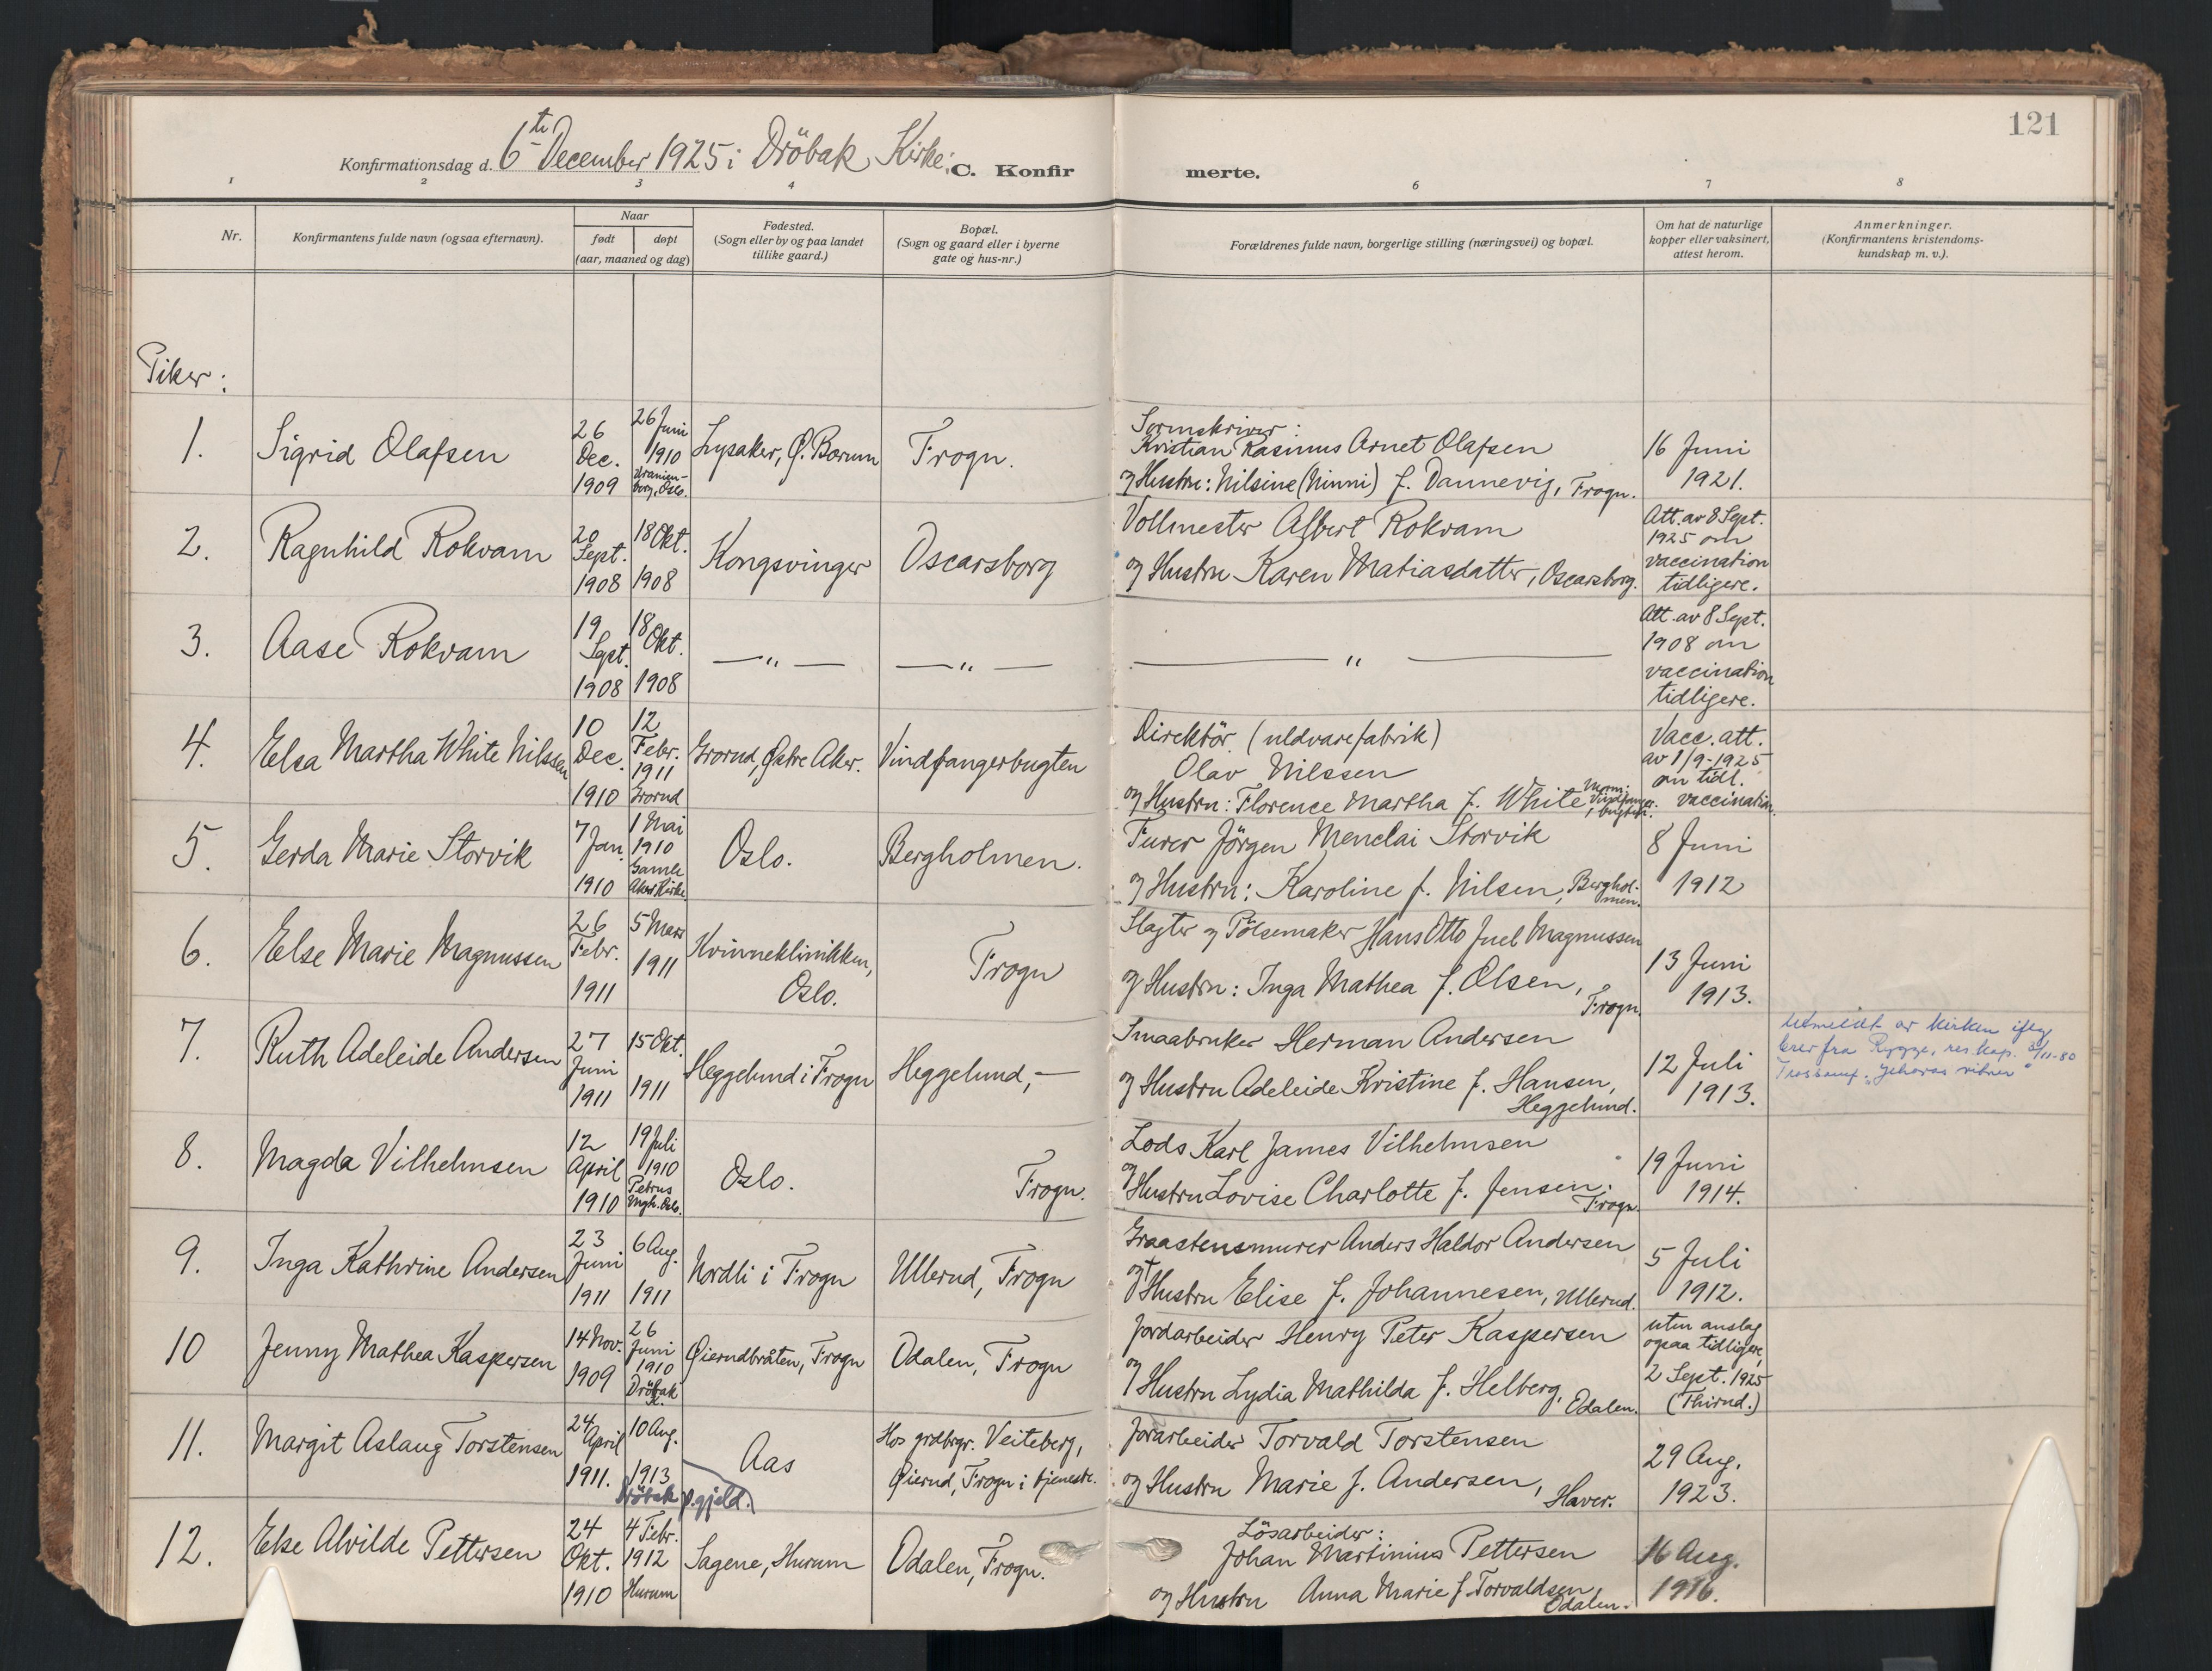 121
Konfirmationsdag d. 6te December 1925 i Dröbak Kirke. C. Konfir merte.
1 2 3 4 6 7 8
Nr.
Konfirmantens fulde navn (ogsaa efternavn).
Naar
født døpt
(aar, maaned og dag)
Fødested.
(Sogn eller by og paa landet
tillike gaard.)
Bopæl.
(Sogn og gaard eller i byerne
gate og hus-nr.)
Forældrenes fulde navn, borgerlige stilling (næringsvei) og bopæl.
Om hat de naturlige
kopper eller vaksinert,
attest herom.
Anmerkninger.
(Konfirmantens kristendoms-
kundskap m. v.).
Piker:
1.
Sigrid Olafsen
26
Dec.
1909
26 Juni
1910
Uranien-
borg, Oslo.
Lysaker, Ø. Bærum
Frogn.
Sorenskriver:
Kristian Rasmus Arnet Olafsen
og Hustru: Nilsine (Ninni) f. Dannevig, Frogn.
16 Juni
1921.
2.
Ragnhild Rokvam
20
Sept.
1908
18 Okt.
1908
Kongsvinger
Oscarsborg
Vollmester Albert Rokvam
og Hustru Karen Matiasdatter, Oscarsborg.
Att. av 8 Sept.
1925 om
vaccination
tidligere.
3.
Aase Rokvam
19
Sept.
1908
18
Okt.
1908
— " —
— " —
— " —
Att. av 8 Sept.
1908 om
vaccination
tidligere.
4.
Elsa Martha White Nilssen
10
Dec.
1910
12
Febr.
1911
Grorud
Grorud, Østre Aker.
Vindfangerbugten
Direktör (uldvarefabrik)
Olav Nilssen
og Hustru: Florence Martha f. White, Vindfanger-
bugten.
Vacc. att.
av 1/9-1925
om tidl.
vaccination.
5.
Gerda Marie Storvik
7
Jan.
1910
1 Mai
1910
Gamle
Aker Kirke
Oslo.
Bergholmen.
Furer Jörgen Menelai Storvik
og Hustru: Karoline f. Nilsen, Berghol-
men.
8 Juni
1912
6.
Else Marie Magnussen
26
Febr.
1911
5 Mars
1911
Kvinneklinikken,
Oslo.
Frogn
Slagter og Pölsemaker Hans Otto Juel Magnussen
og Hustru: Inga Mathea f. Olsen,
Frogn.
13 Juni
1913.
7.
Ruth Adeleide Andersen
27
Juni
1911
15 Okt.
1911
Heggelund i Frogn
Heggelund, —
Smaabruker Herman Andersen
og Hustru Adeleide Kristine f. Hansen,
Heggelund.
12 Juli
1913.
Utmeldt av kirken iflg
brev fra Rygge, res. kap. 3/11-80
Trossamf. "Jehovas vitner"
8.
Magda Vilhelmsen
12
April
1910
19 Juli
1910
Petrus
Mgh. Oslo.
Oslo.
Frogn.
Lods Karl James Vilhelmsen
og
Hustru Lovise Charlotte f. Jensen.
Frogn.
19 Juni
1914.
9.
Inga Kathrine Andersen
23
Juni
1911
6 Aug.
1911
Nordli i Frogn
Ullerud, Frogn
Graastensmurer Anders Haldor Andersen
og †
Hustru Elise f. Johannesen, Ullerud.
5 Juli
1912.
10
Jenny Mathea Kaspersen
14 Nov.
1909
26
Juni
1910
Dröbak
K.
Øierudbråten, Frogn
Odalen, Frogn
Jordarbeider Henry Peter Kaspersen
og Hustru Lydia Mathilda f. Helberg,
Odalen.
uten anslag
ogsaa tidligere,
2 Sept. 1925
(Thirud.)
11.
Margit Aslaug Torstensen
24
April
1911.
10 Aug.
1913
Dröbak p.gjeld.
Aas
Hos grdbrgr. Veiteberg,
Øierud, Frogn i tjeneste.
Jorarbeider Torvald Torstensen
og Hustru Marie f. Andersen,
Haver.
29 Aug.
1923.
12.
Else Alvilde Pettersen
24
Okt.
1910
4 Febr.
1912
Hurum
Sagene, Hurum
Odalen, Frogn.
Lösarbeider:
Johan Martinius Pettersen
og Hustru Anna Marie f. Torvaldsen,
Odalen.
16 Aug.
1916.